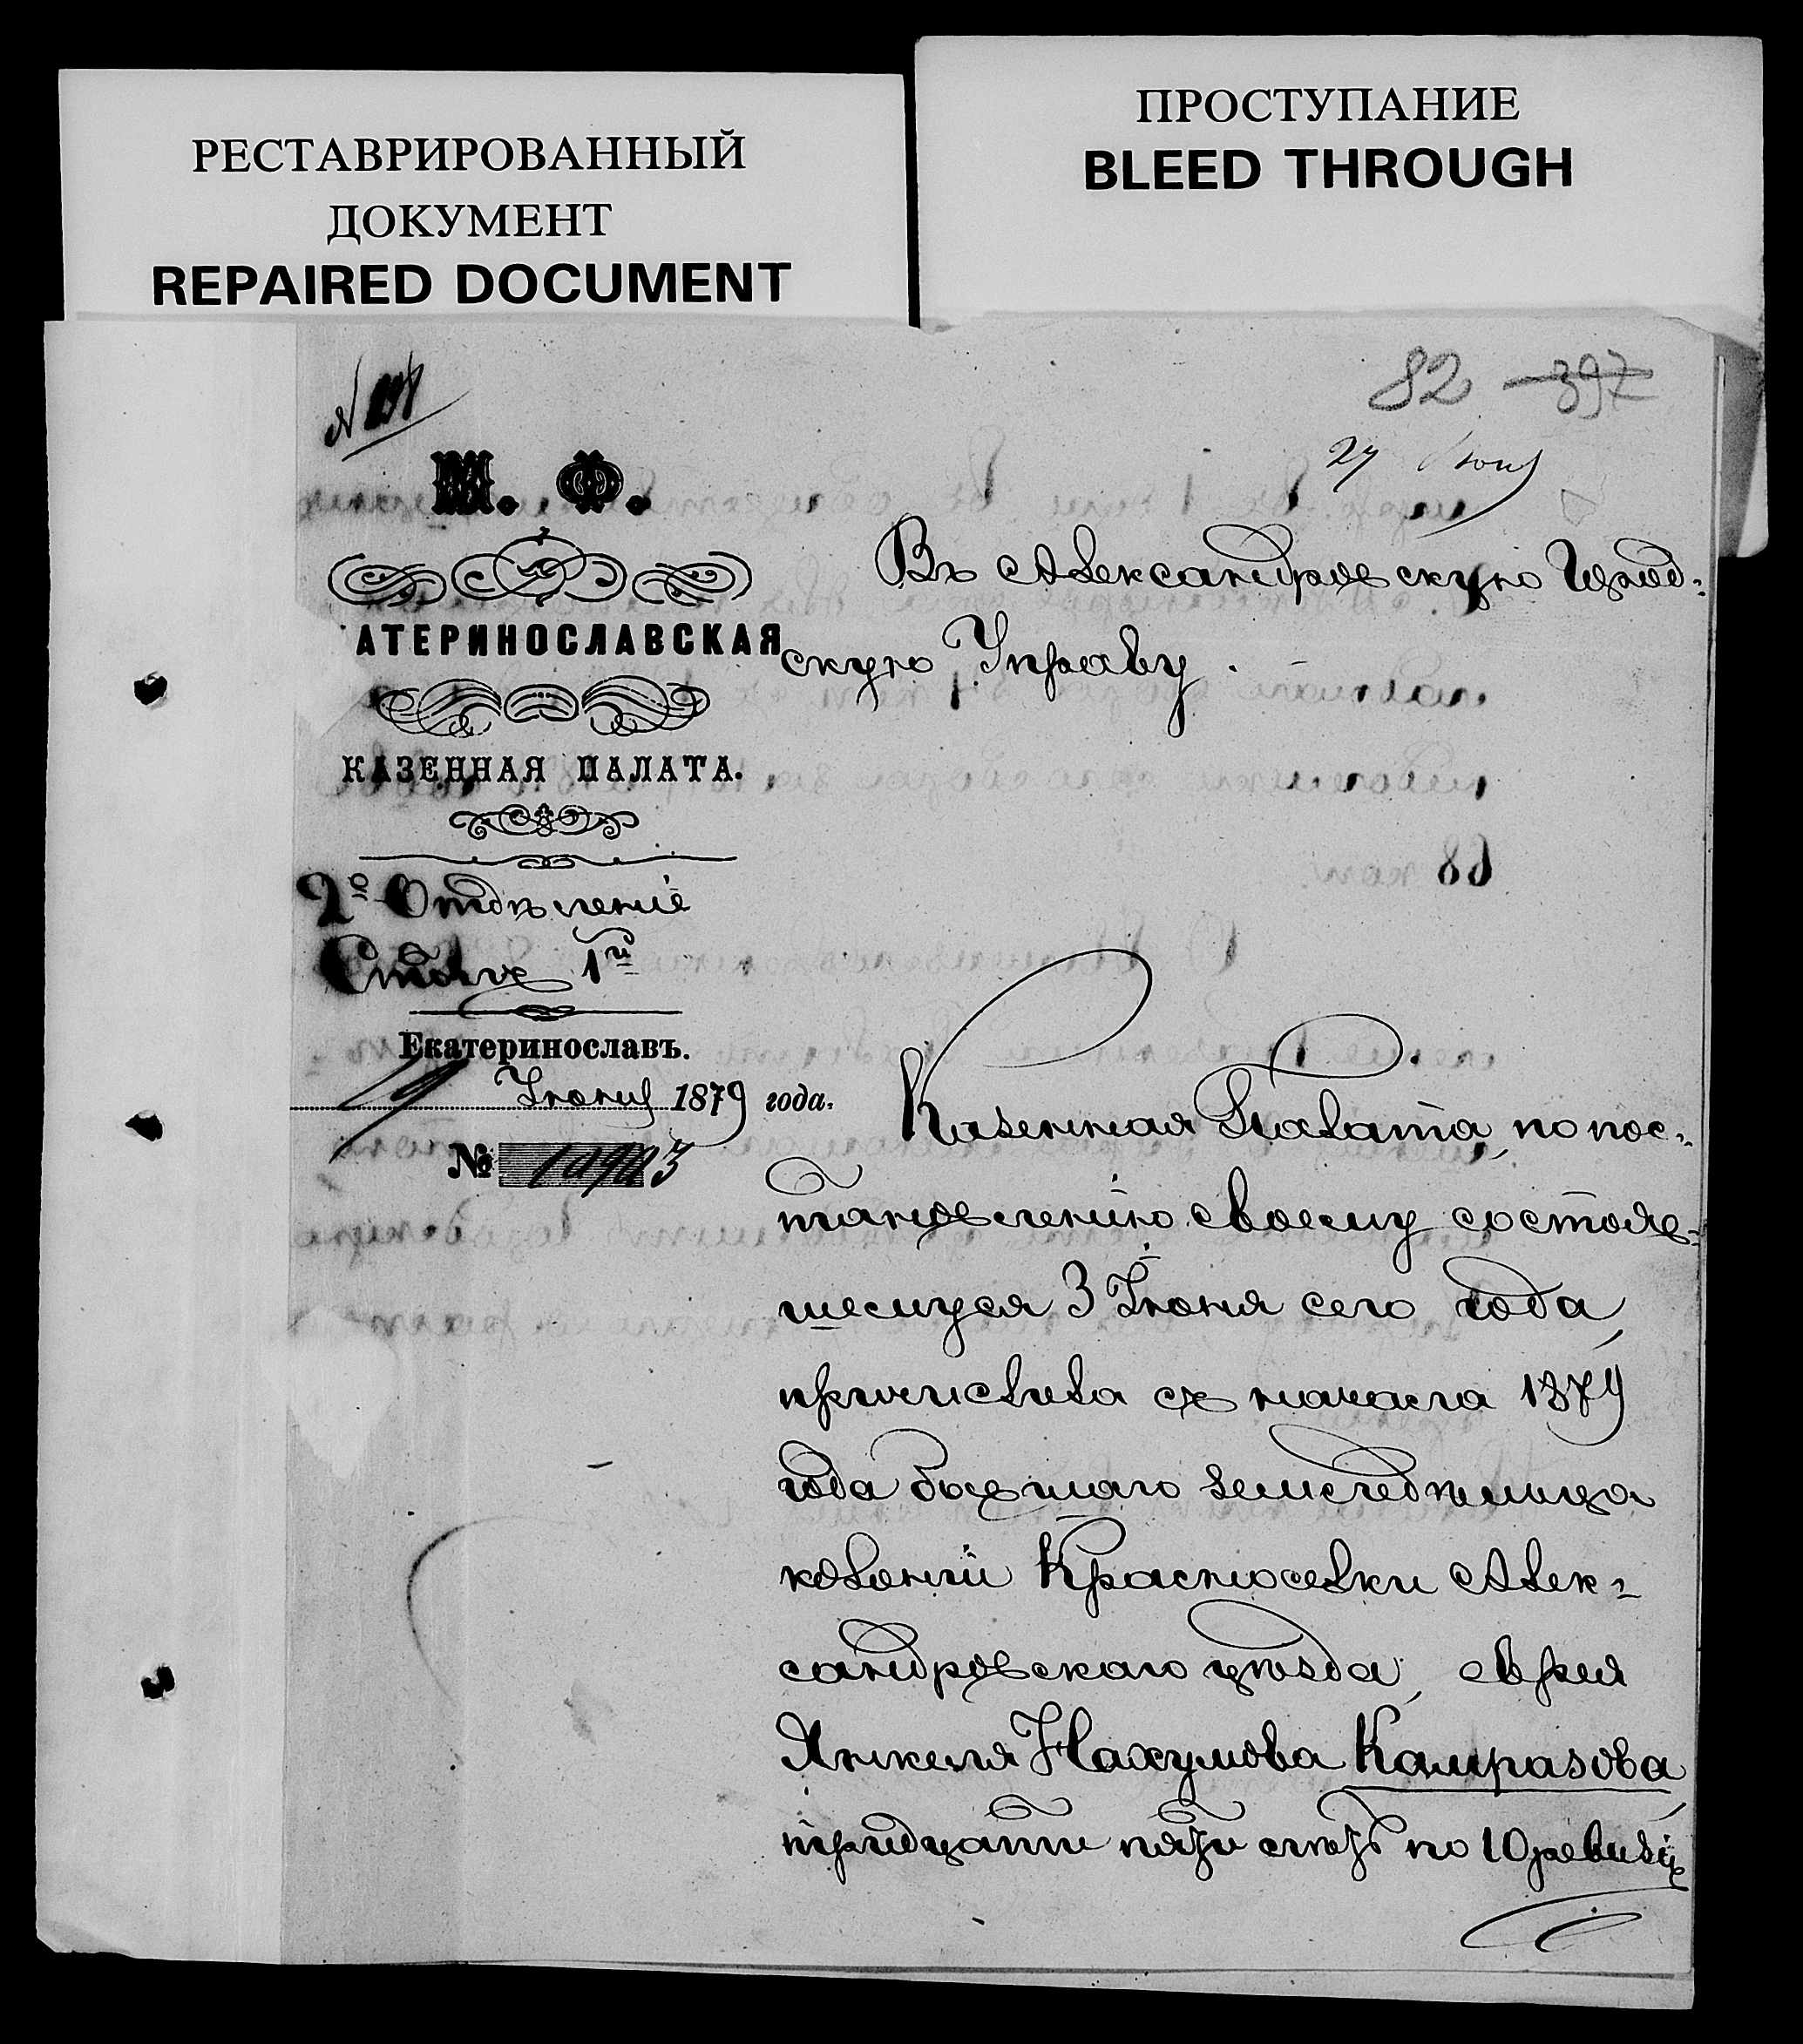 РЕСТАВРИРОВАННЫЙ
ДОКУМЕНТ
REPAIRED DOCUMENT
ПРОСТУПАНИЕ
BLEED THROUGH
82 397
М. Ф.
АТЕРИНОСЛАВСКАЯ
КАЗЕННАЯ ПАЛАТА.
2º Отдѣленіе
Столъ 1й
Екатеринославъ.
Іюня 1879 года.
№
Въ Александровскую Город-
скую Управу.
Казенная Палата, по пос-
тановленію своему состояв-
шемуся 3 Іюня сего года,
причислила съ начала 1879
года бывшаго земледѣльца
колоніи Красноселки Алек-
сандровскаго уѣзда, еврея
Янкеля Нахумова Камразова,
тридцати пяти лѣтъ по 10 ревизіи